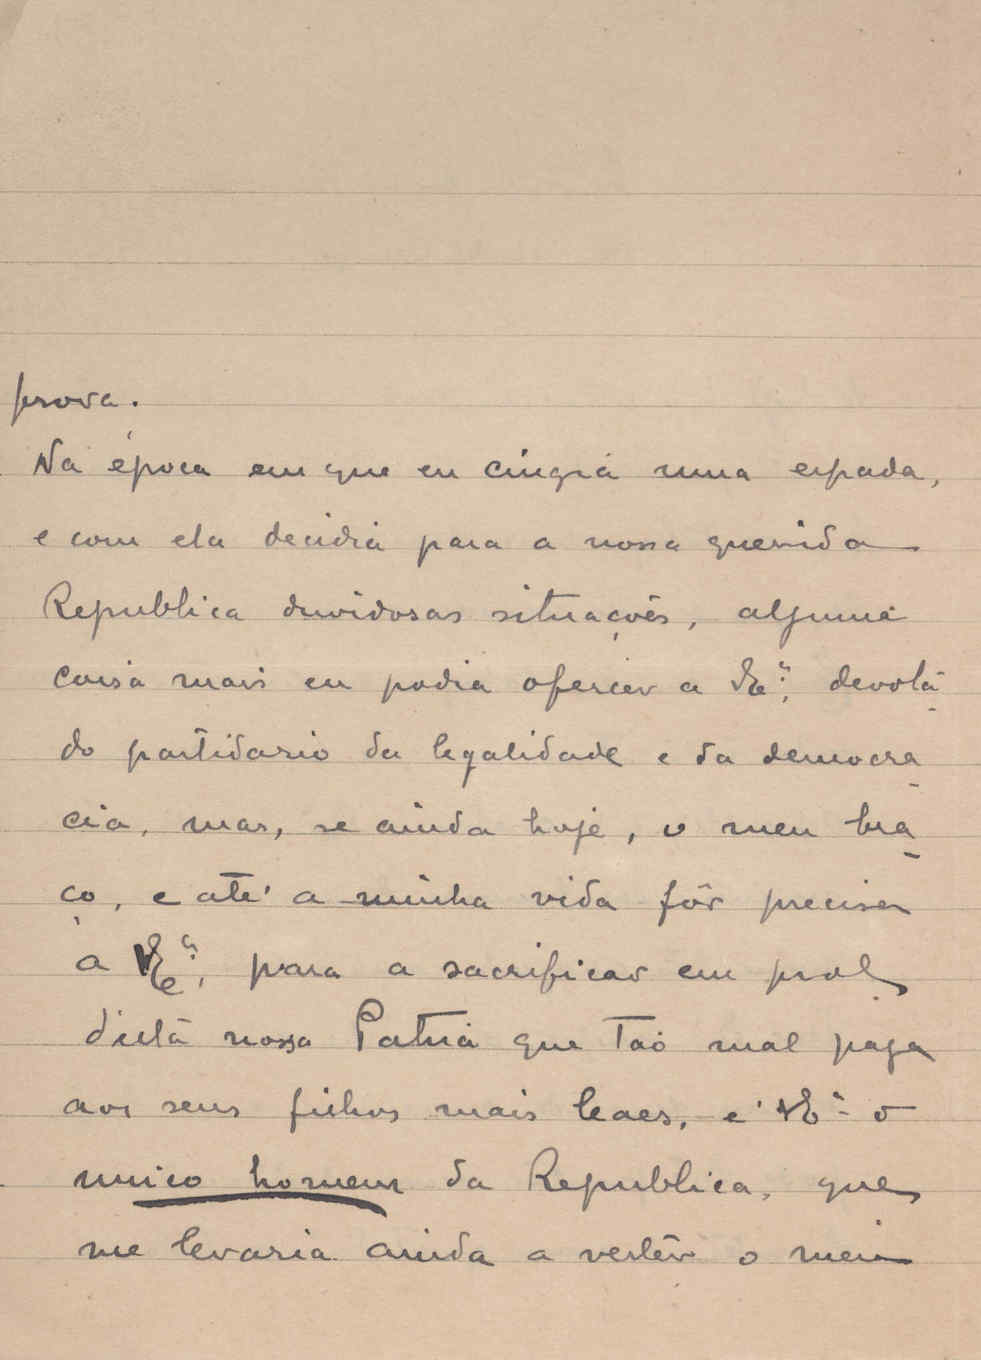 prova.
Na época em que eu cingia uma espada,
e com ela decidia para a nossa querida
Republica duvidosas situações, alguma
coisa mais eu podia oferecer a V.Exª, devota
do partidario da legalidade e da democra
cia, mas, se ainda hoje, o meu bra
ço, e até a minha vida fôr precisa
a V.Exª, para a sacrificar em prol
desta nossa Patria que tão mal paga
aos seus filhos mais leaes, é V.Exª o
unico homem da Republica, que
me levaria ainda a vestir o meu